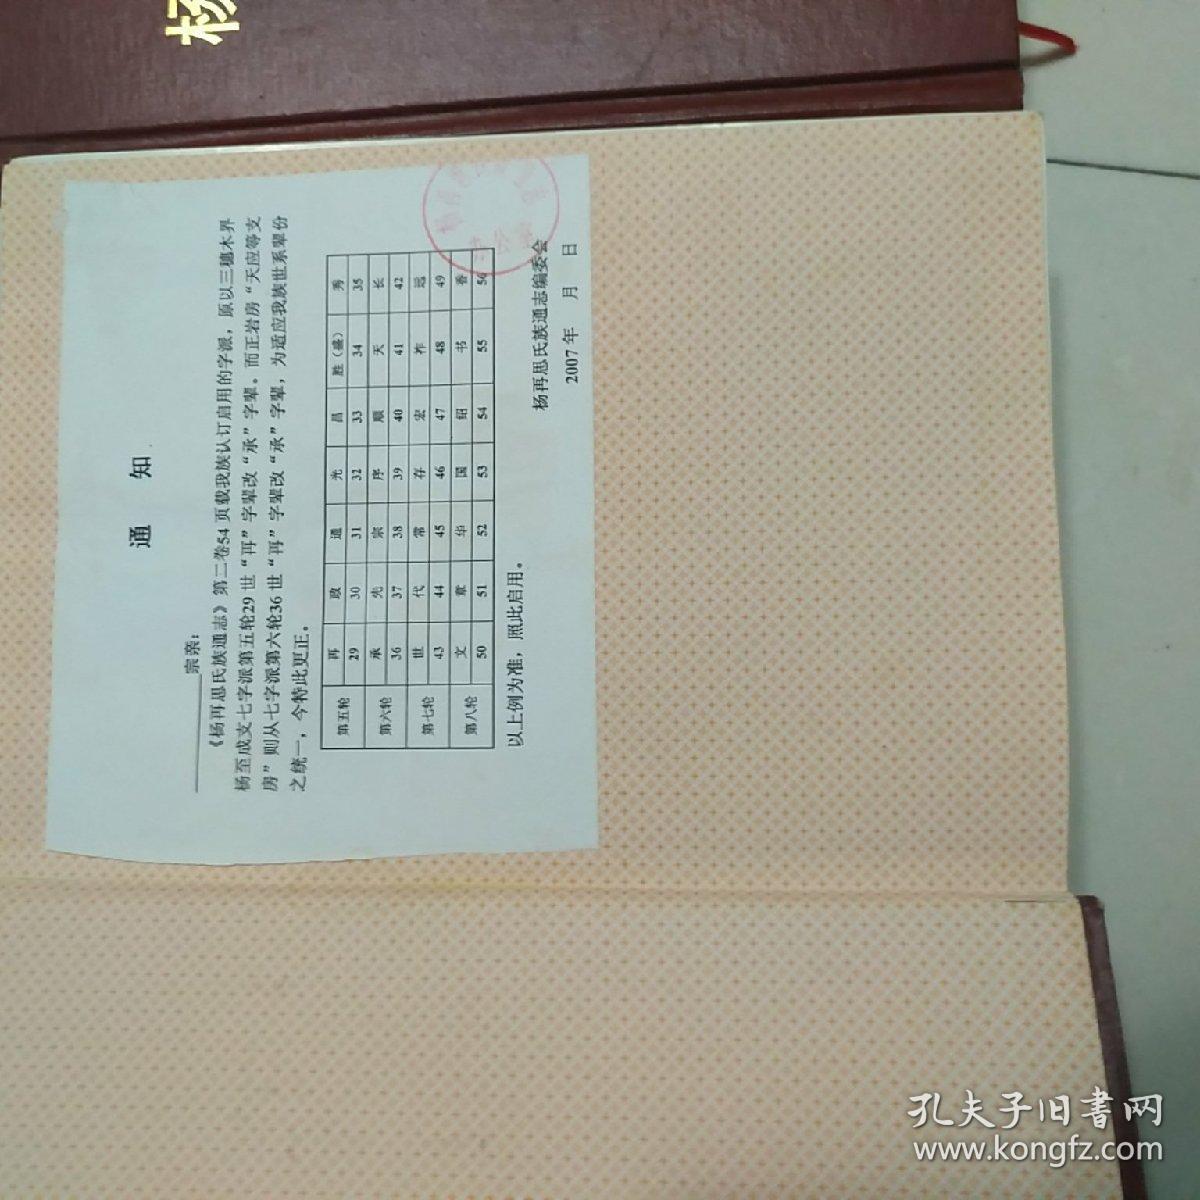 杨
通 知
宗亲：
《杨再思氏族通志》第二卷54页载我族认订启用的字派，原以三穗木界
杨至成支七字派第五轮29世“再”字辈改“承”字辈。而正岩房“天应等支
房”则从七字派第六轮36世“再”字辈改“承”字辈，为适应我族世系辈份
之统一，今特此更正。
第五轮 再 政 通 光 昌 胜（盛） 秀
29 30 31 32 33 34 35
第六轮 承 先 宗 序 顺 天 长
36 37 38 39 40 41 42
第七轮 世 代 常 存 宏 祚 远
43 44 45 46 47 48 49
第八轮 文 章 华 国 绍 书 香
50 51 52 53 54 55 56
以上例为准，照此启用。
杨再思氏族通志编委会
2007年 月 日
孔夫子旧书网
www.kongfz.com